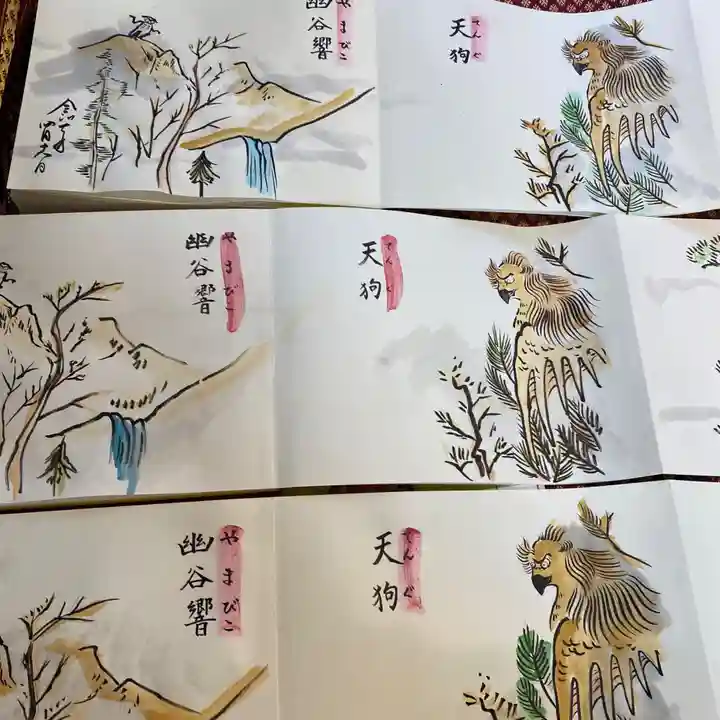 幽谷響
やまびこ
天狗
てんぐ
幽谷響
やまびこ
天狗
てんぐ
幽谷響
やまびこ
天狗
てんぐ